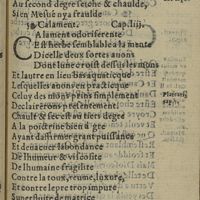 Au second degre seche & chaulde,
Si en Mesue nya fraulde
Calament. Cap. liij.
A lament odoriferente
Est herbe semblable a la mente
Dicelle deux sortes auons
Dont lune croist dessus les mons
Et lautre en lieu bas aquaticque
Lesquelles auons en practicque
Celuy des mons prins simplement
Declairerons presentement
Chault & sec est au tiers degre
A la poictrine bien a gre
Ayant dassirmer grant puissance
Et de nacer labondance
De lhumeur & viscosite
De lhumaine fragilite
Contre la toux, reume, luxure,
Et contre lepre trop impure
Superfluite de matrice